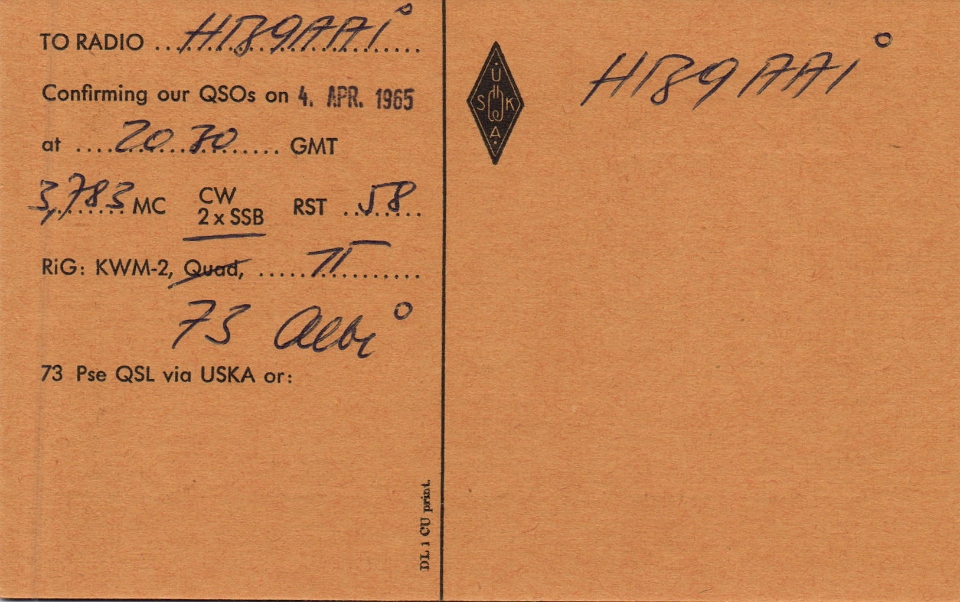 TO RADIO HB9AAI
Confirming our QSOs on 4. APR. 1965
at 20.30 GMT
3,783 MC CW
2 x SSB RST 58
RiG: KWM-2, Quad,
73 Albi
73 Pse QSL via USKA or:
DL 1 CU print.
U
S K
A
HB9AAI